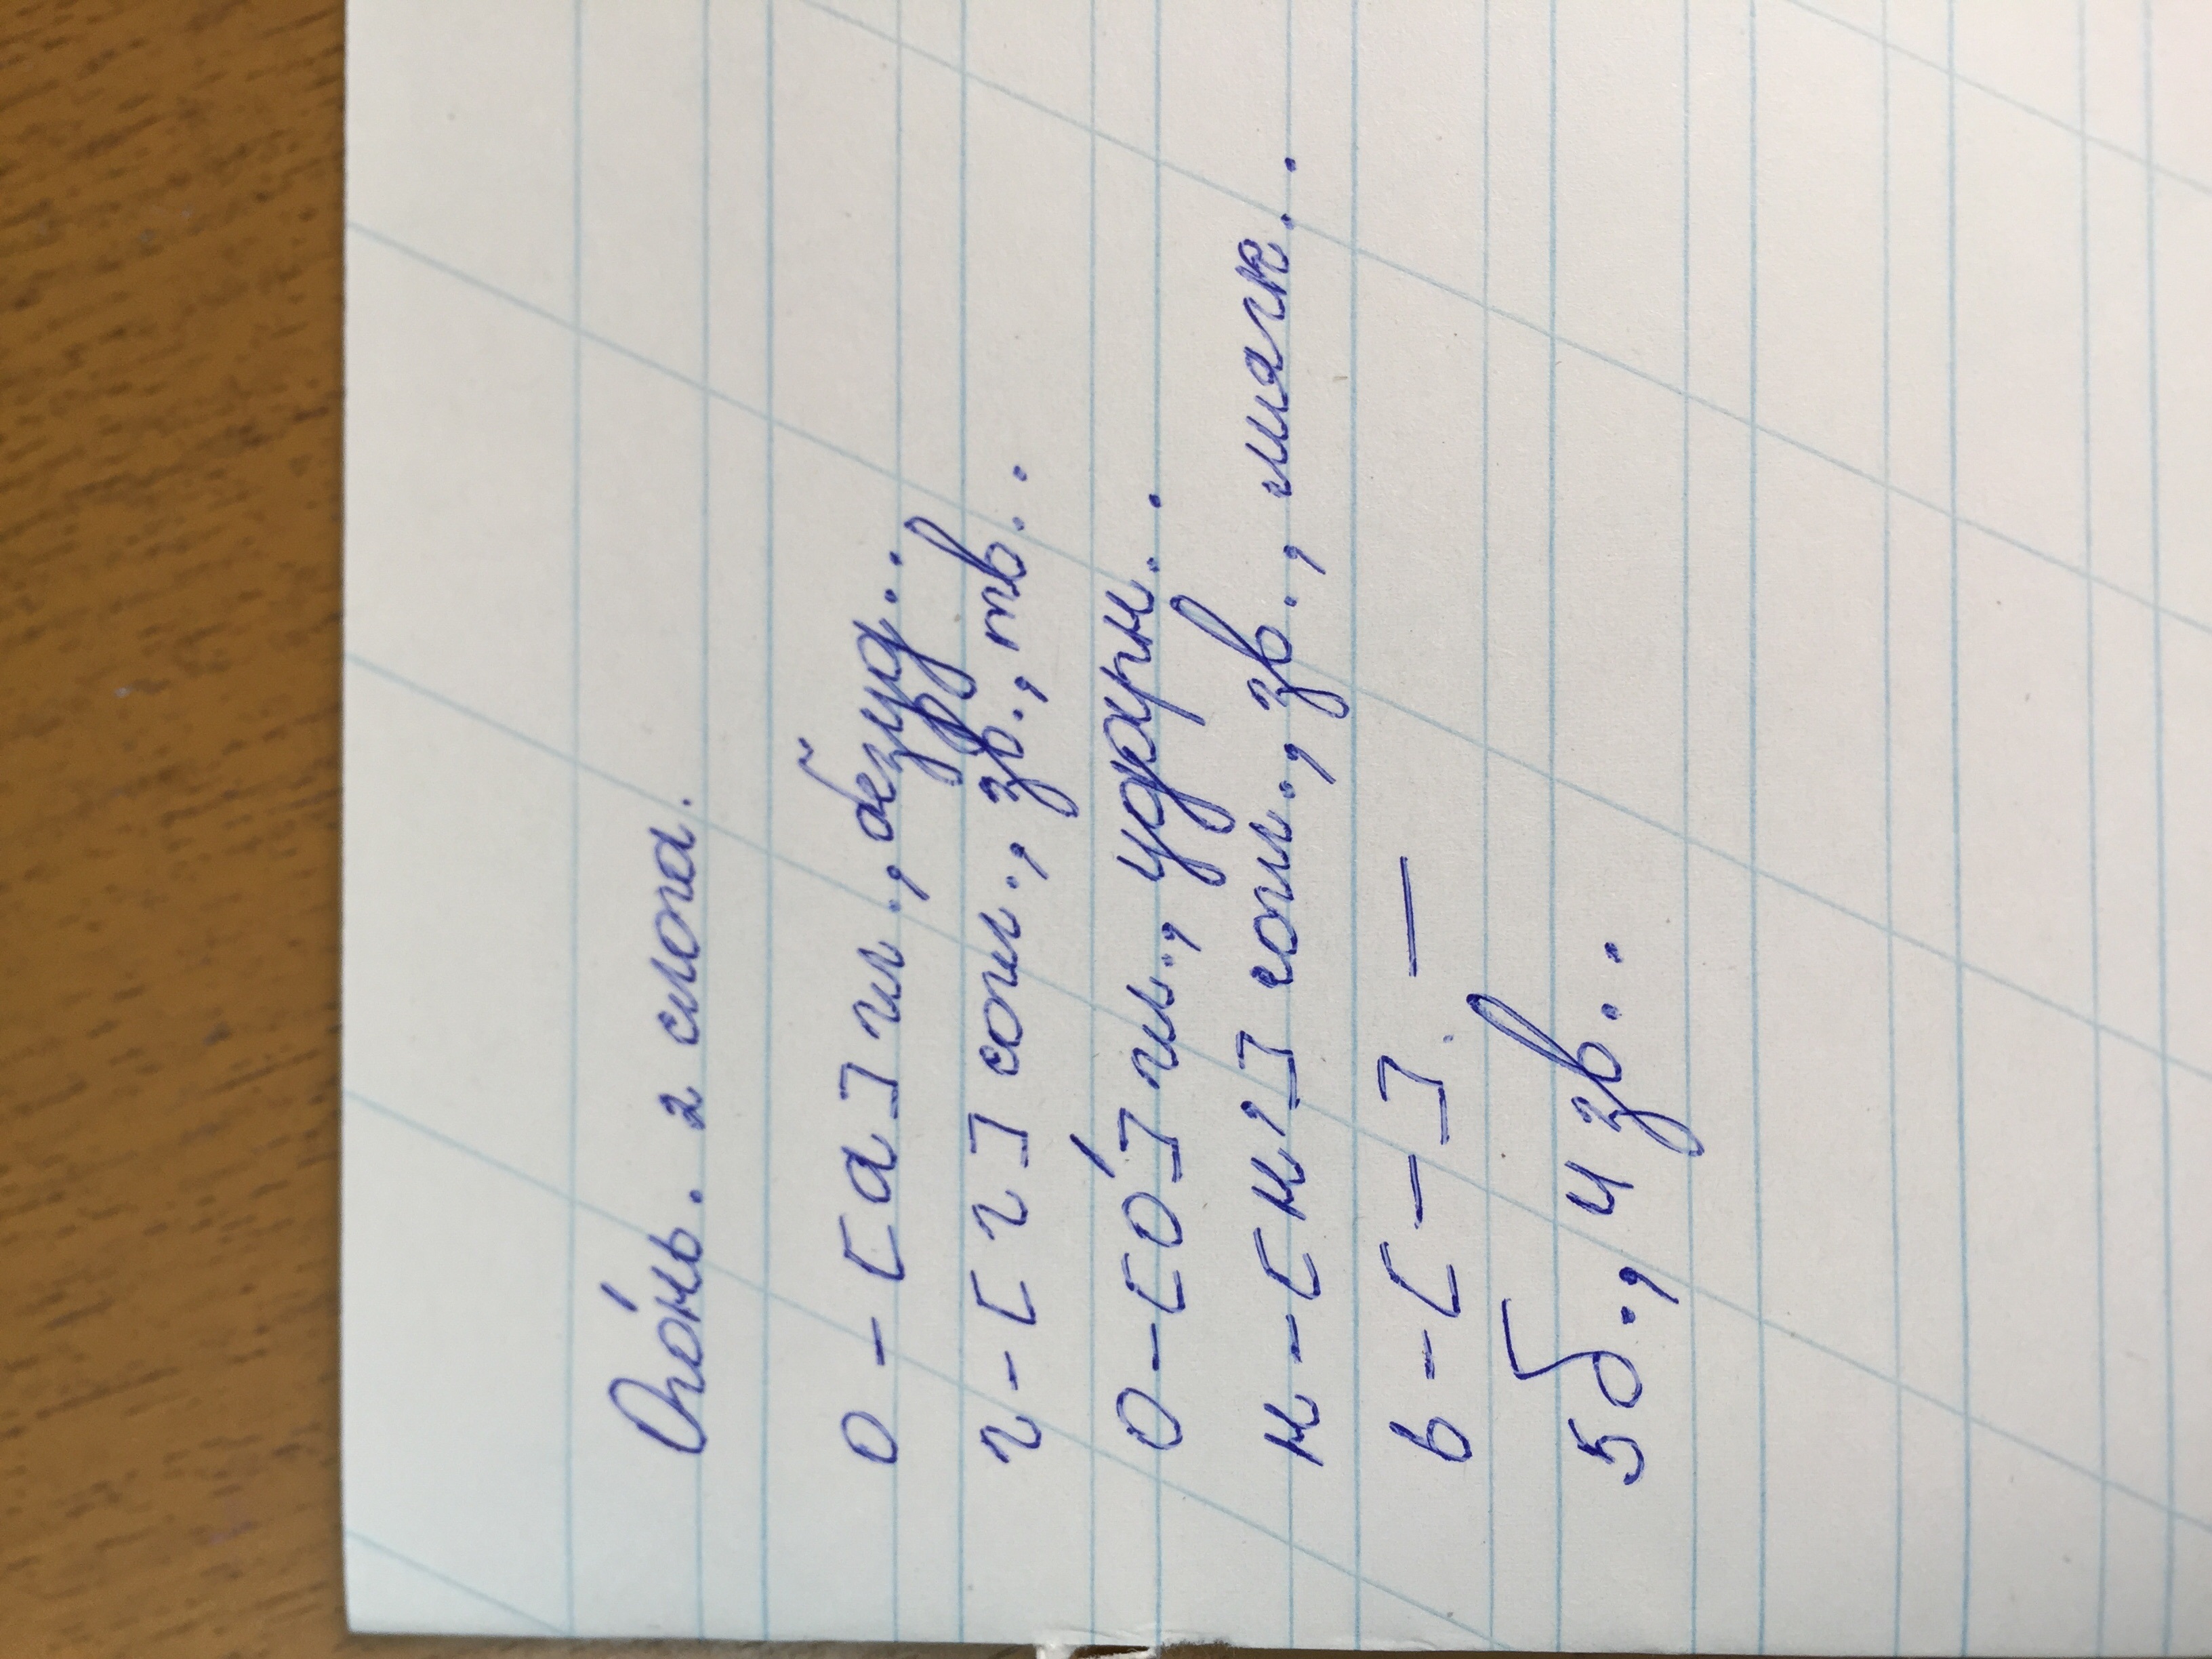 Ого́нь. 2 слога.
о - [а] гл., безуд..
г - [г] согл., зв., тв..
о - [о́] гл., ударн..
н - [н,] согл., зв., мягк..
ь - [-]. —
5 б., 4 зв..